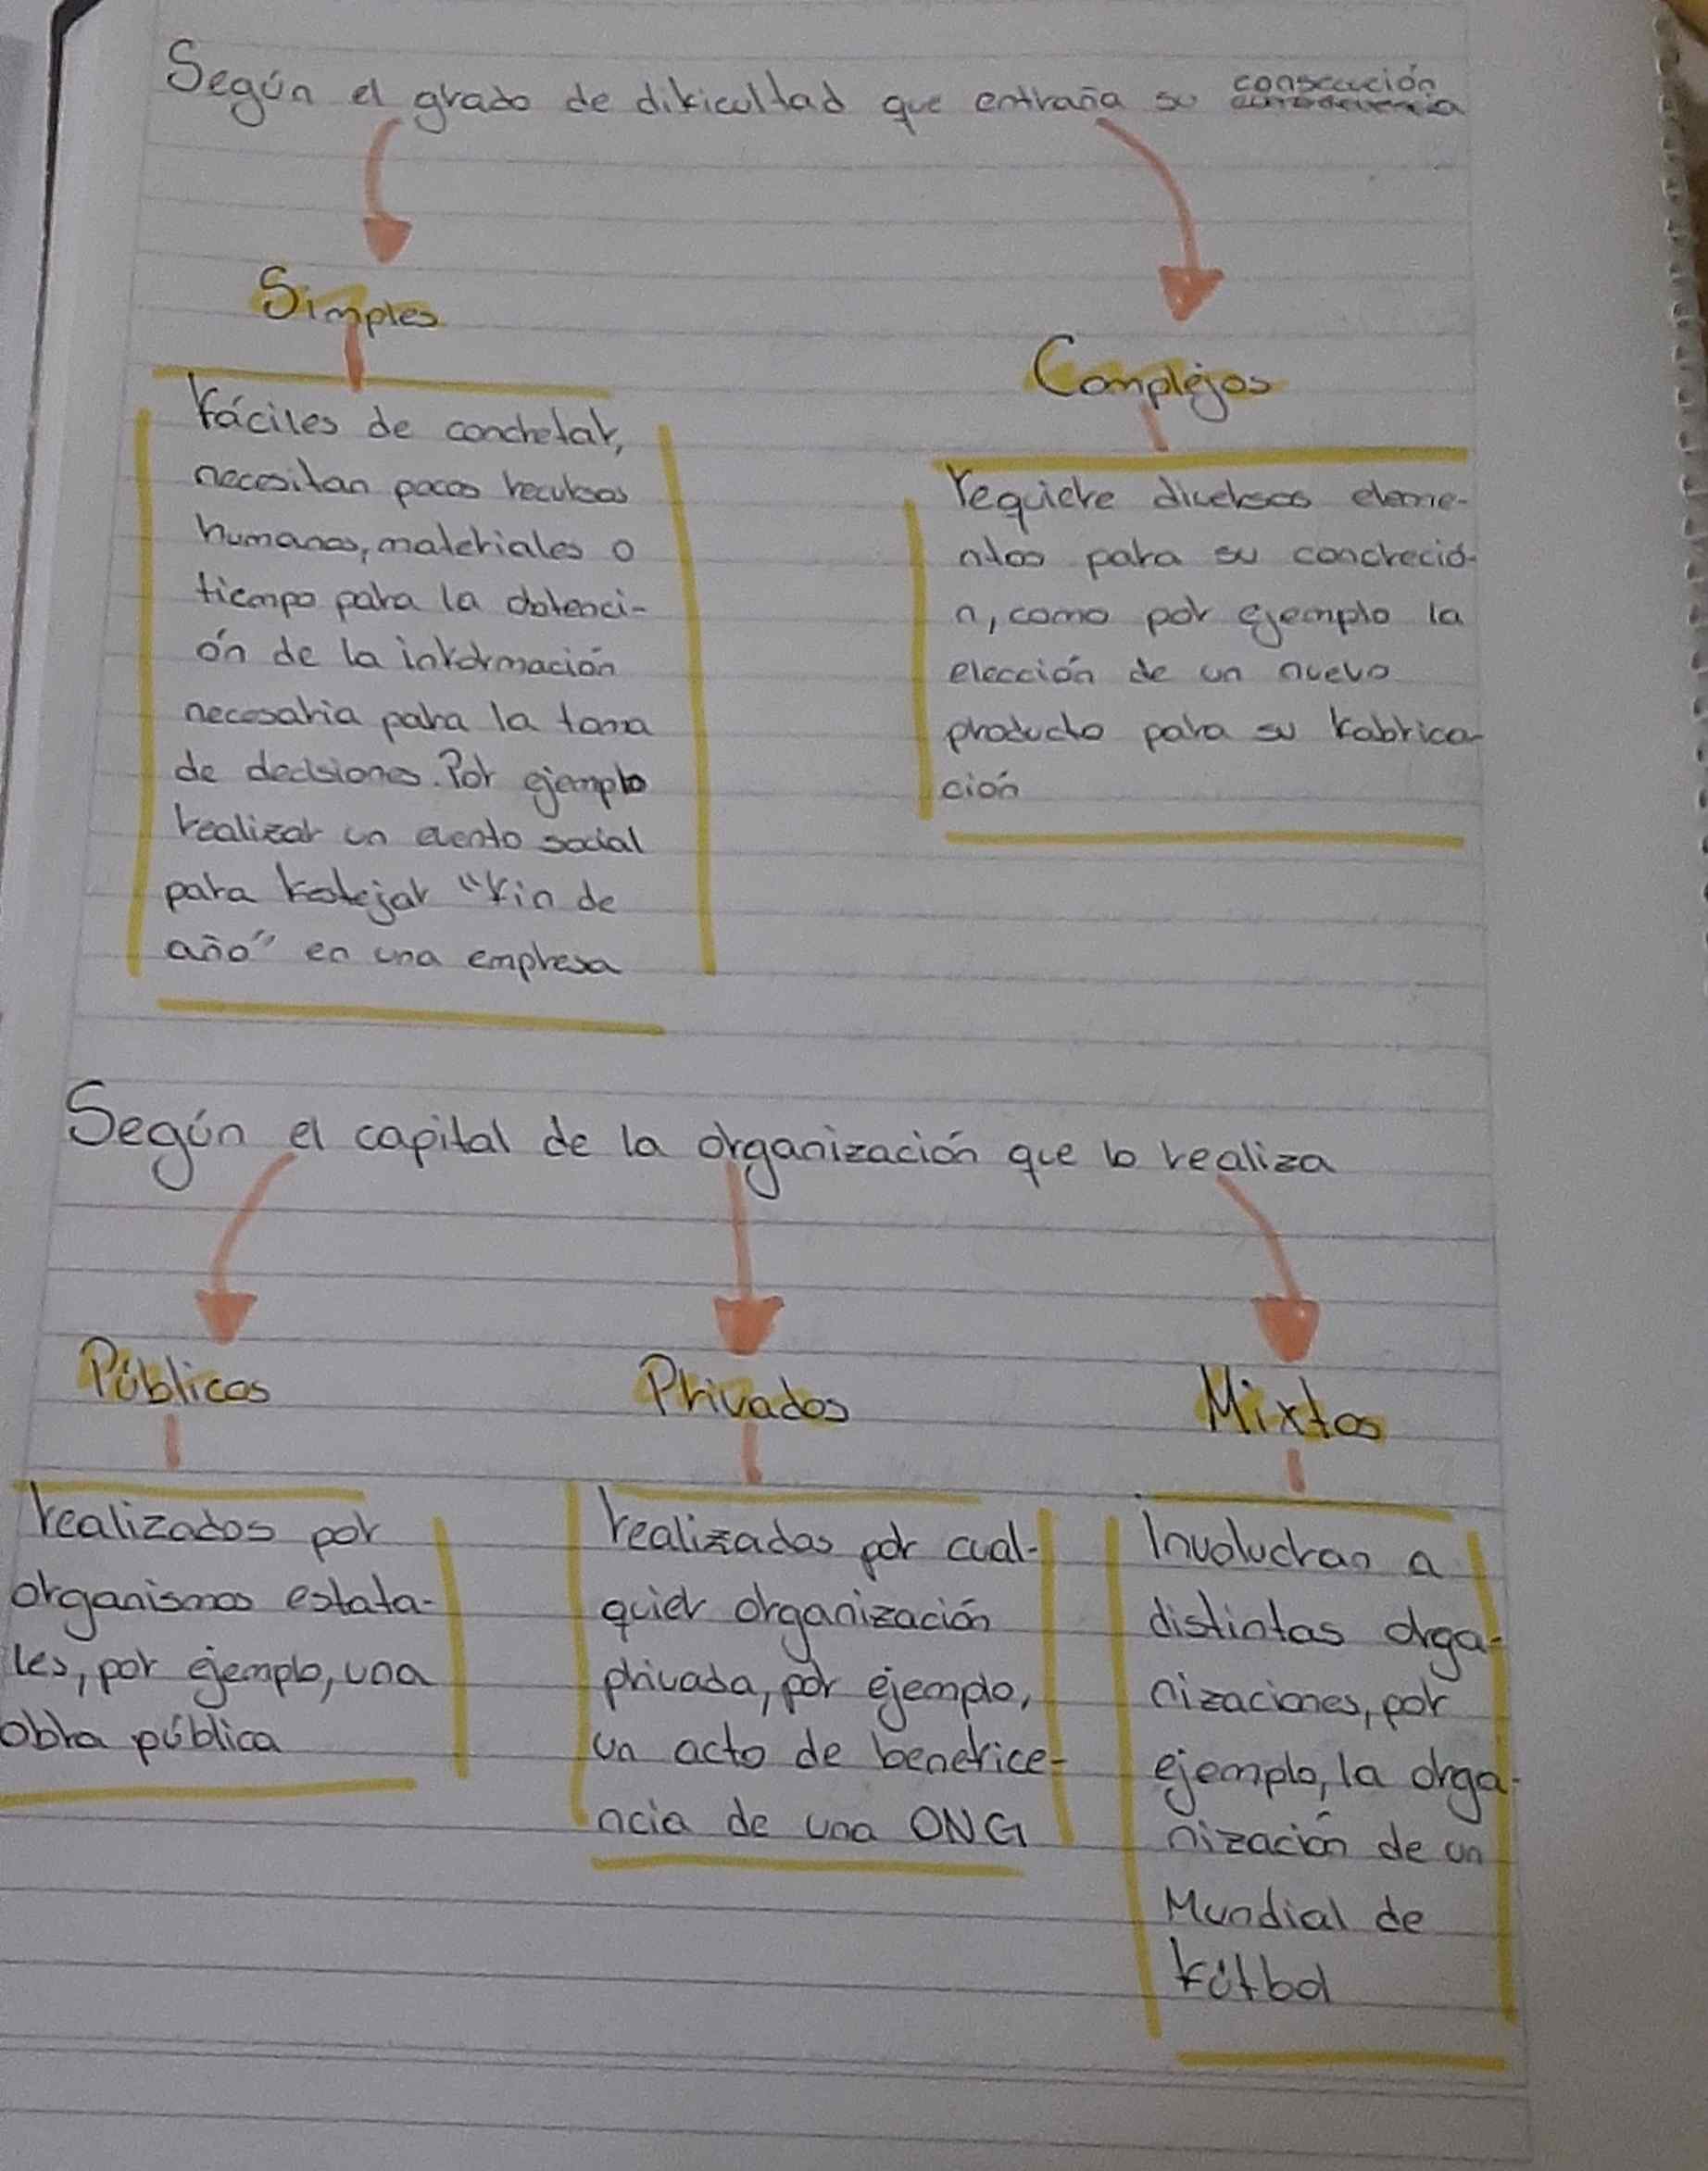 Según el grado de dificultad que entraña su consecución
Simples
fáciles de concretar,
necesitan pocos recursos
humanos, materiales o
tiempo para la obtenci-
ón de la información
necesaria para la toma
de decisiones. Por ejemplo
realizar un evento social
para festejar "fin de
año" en una empresa
Complejos
requiere diversos eleme-
ntos para su concreció-
n, como por ejemplo la
elección de un nuevo
producto para su fabrica-
ción
Según el capital de la organización que lo realiza
Públicos
realizados por
organismos estata-
les, por ejemplo, una
obra pública
Privados
realizados por cual-
quier organización
privada, por ejemplo,
un acto de benefice-
ncia de una ONG
Mixtos
Involucran a
distintas orga-
nizaciones, por
ejemplo, la orga-
nización de un
Mundial de
fútbol